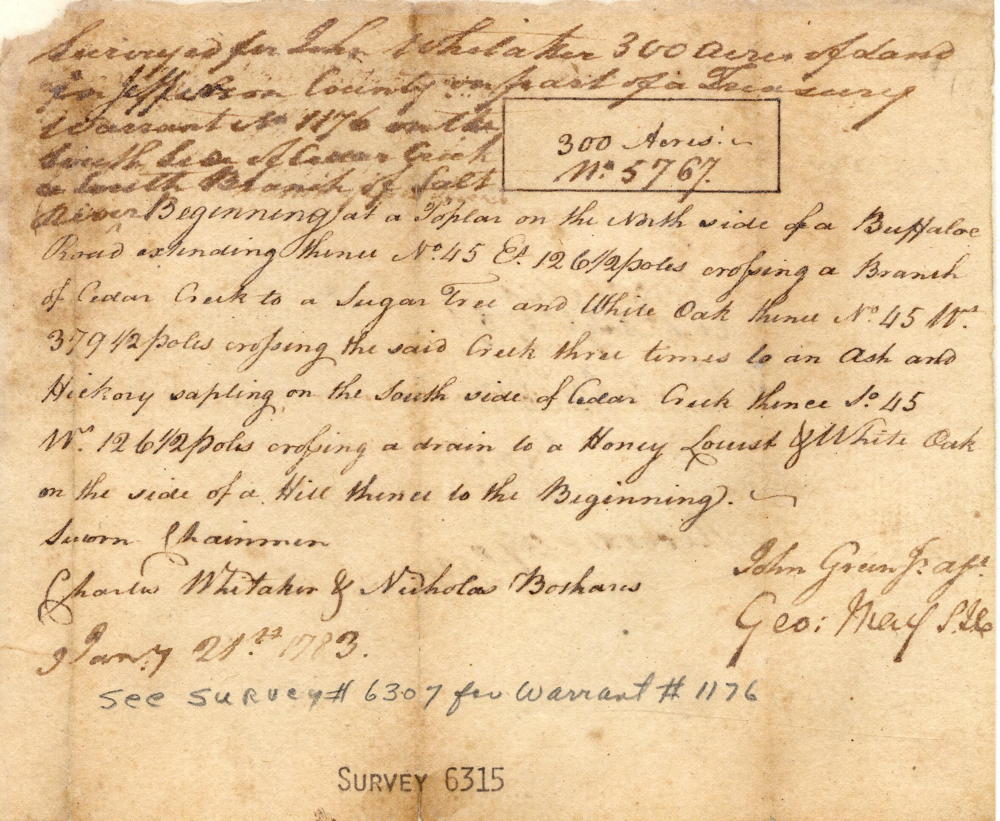 Surveyed for John Whitaker 300 Acres of Land
in Jefferson County on part of a Treasury
Warrant No 1176 on the
South side of Cedar Creek
a South Branch of Salt
River Beginning at a Poplar on the North side of a Buffaloe
Road extending thence No. 45 Et. 126 1/2 poles crossing a Branch
of Cedar Creek to a Sugar Tree and White Oak thence No. 45 Wt.
379 1/2 poles crossing the said Creek three times to an Ash and
Hickory sapling on the South side of Cedar Creek thence So. 45
Wt. 126 1/2 poles crossing a drain to a Honey Locust & White Oak
on the side of a Hill thence to the Beginning.
300 Acres:
No. 5767.
Sworn Chainmen
Charles Whitaker & Nicholas Boshares
John Green Jr. asst
Geo: May
Jany 21st 1783.
See Survey # 6307 for Warrant # 1176
SURVEY 6315